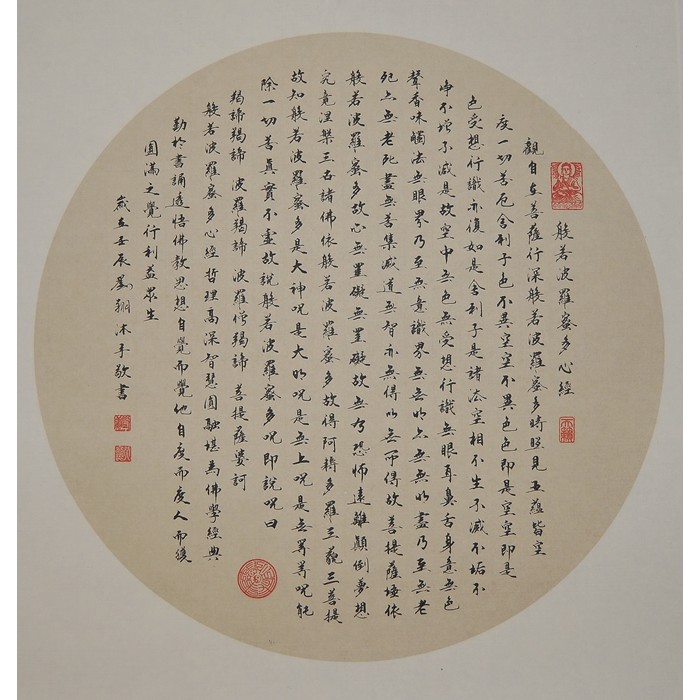 般若波羅蜜多心經
觀自在菩薩行深般若波羅蜜多時照見五蘊皆空
度一切苦厄舍利子色不異空空不異色色即是空空即是
色受想行識亦復如是舍利子是諸法空相不生不滅不垢不
淨不增不減是故空中無色無受想行識無眼耳鼻舌身意無色
聲香味觸法無眼界乃至無意識界無無明亦無無明盡乃至無老
死亦無老死盡無苦集滅道無智亦無得以無所得故菩提薩埵依
般若波羅蜜多故心無罣礙無罣礙故無有恐怖遠離顛倒夢想
究竟涅槃三世諸佛依般若波羅蜜多故得阿耨多羅三藐三菩提
故知般若波羅蜜多是大神咒是大明咒是無上咒是無等等咒能
除一切苦真實不虛故說般若波羅蜜多咒即說咒曰
羯諦羯諦 波羅羯諦 波羅僧羯諦 菩提薩婆訶
般若波羅蜜多心經哲理高深智慧圓融堪為佛學經典
勤於書誦透悟佛教思想自覺而覺他自度而度人而後
圓滿之覺行利益眾生
歲在壬辰劉翔沐手敬書